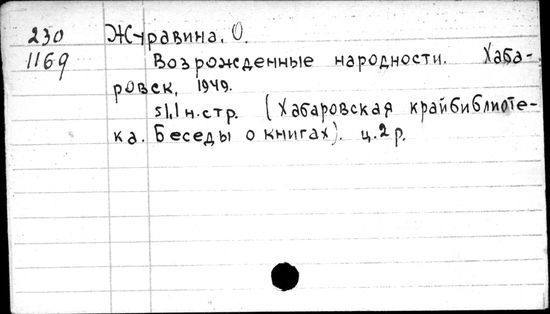 230 Журавина, О.
1169 Возрожденные народности. Хаба-
ровск, 1949.
51,1 н.стр. (Хабаровская крайбиблиоте-
ка. Беседы о книгах). ц. 2 р.